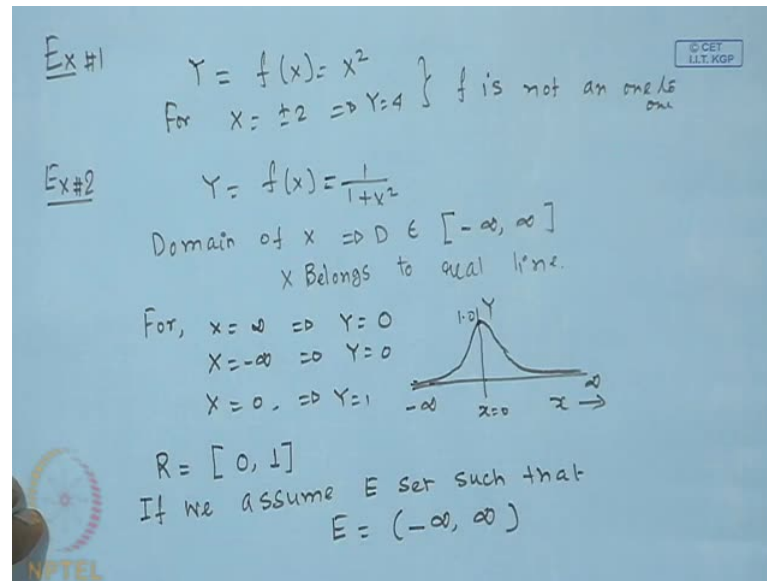 Ex #1
Y = f(x) = x²
© CET
I.I.T. KGP
For X = ±2 => Y = 4 } f is not an one to one
Ex #2
Y = f(x) = 1/(1+x²)
Domain of x => D ∈ [-∞, ∞]
X Belongs to real line.
For, x = ∞ => Y = 0
X = -∞ => Y = 0
X = 0. => Y = 1
1.0 Y
-∞ x=0 x → ∞
R = [0, 1]
If we assume E set such that
E = (-∞, ∞)
NPTEL